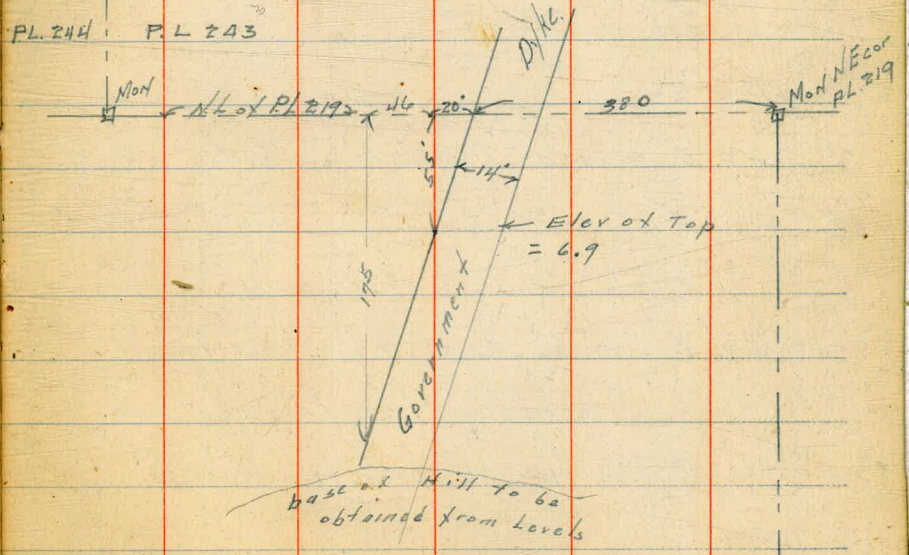 PL. 244
P. L 243
Dyke.
Mon
N.L of PL 219
46
20'
380
Mon NE cor
PL. 219
55'
14'
Elev of Top
= 6.9
175
Government
base of Hill to be
obtained from Levels